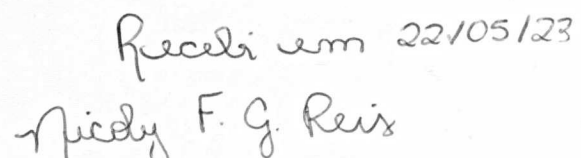 Recebi em 22/05/23
Nicoly F. G. Reis